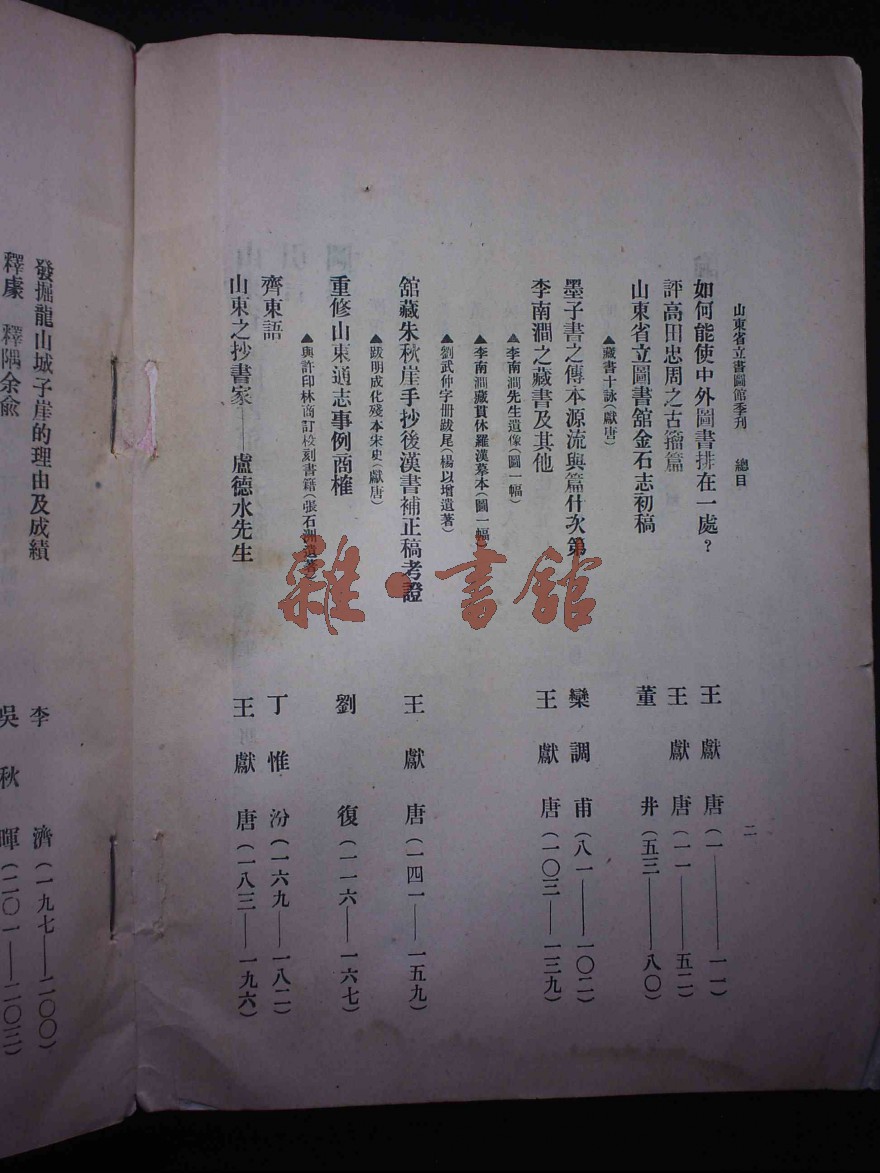 山東省立書圖館季刊　總目
二
如何能使中外圖書排在一處？　王獻唐（一——一一）
評高田忠周之古籀篇　王獻唐（一一——五二）
山東省立圖書舘金石志初稿　董井（五三——八〇）
▲藏書十詠（獻唐）
墨子書之傳本源流與篇什次第　欒調甫（八一——一〇二）
李南澗之藏書及其他　王獻唐（一〇三——一三九）
▲李南澗先生遺像（圖一幅）
▲李南澗藏貫休羅漢摹本（圖一幅）
▲劉武仲字冊跋尾（楊以增遺著）
舘藏朱秋崖手抄後漢書補正稿考證　王獻唐（一四一——一五九）
▲跋明成化殘本宋史（獻唐）
重修山東通志事例商榷　劉復（一一六——一六七）
▲與許印林商訂校刻書籍（張石洲遺著）
齊東語　丁惟汾（一六九——一八二）
山東之抄書家——盧德水先生　王獻唐（一八三——一九六）
發掘龍山城子崖的理由及成績　李濟（一九七——二〇〇）
釋㝩　釋隅余兪　吳秋暉（二〇一——二〇三）
雜·書館